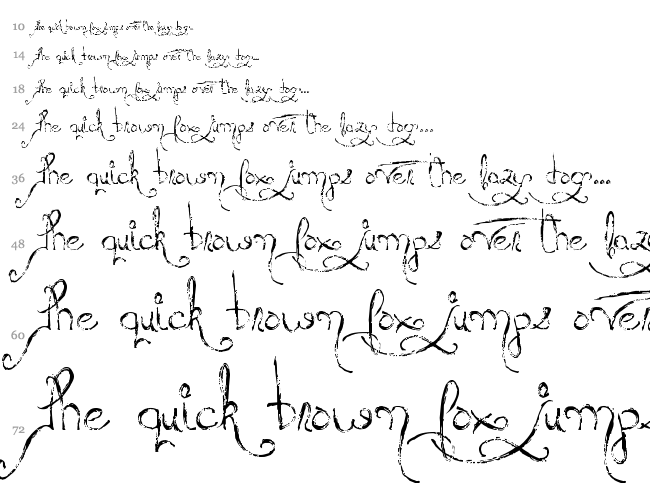 10 the quick brown fox jumps over the lazy dog...
14 the quick brown fox jumps over the lazy dog...
18 the quick brown fox jumps over the lazy dog...
24 the quick brown fox jumps over the lazy dog...
36 the quick brown fox jumps over the lazy dog...
48 the quick brown fox jumps over the laz
60 the quick brown fox jumps over
72 the quick brown fox jumps